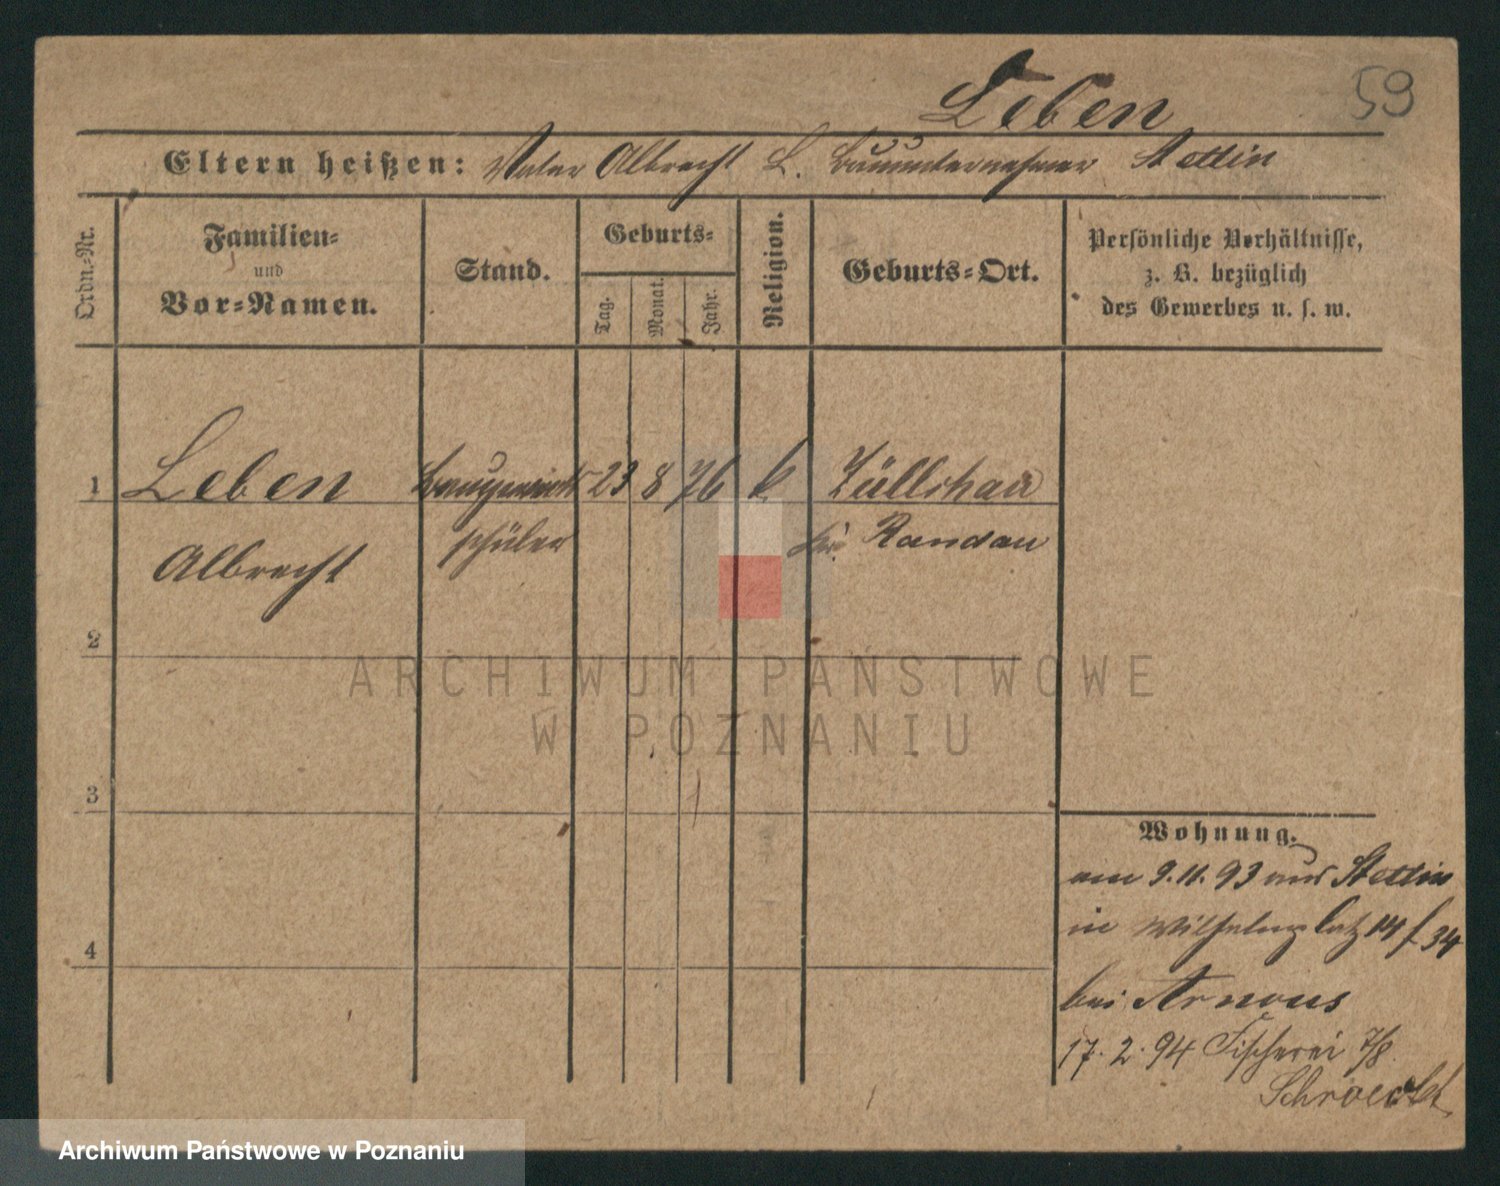 59
Leben
Eltern heißen: Vater Albrecht L. Bauunternehmer Stettin
Ordn.-Nr.
Familien-
und
Vor-Namen.
Stand.
Geburts-
Tag.
Monat.
Jahr.
Religion.
Geburts-Ort.
Persönliche Verhältnisse,
z. B. bezüglich
des Gewerbes u. s. w.
1 Leben 23 8 76 k Züllchau
Albrecht schüler Kr. Randau
2
3
4
ARCHIWUM PAŃSTWOWE
W POZNANIU
Wohnung.
am 9.11.93 aus Stettin
in Wilhelmplatz 14 f 34
bei Arnous
17.2.94 Fischerei 7/8
Archiwum Państwowe w Poznaniu